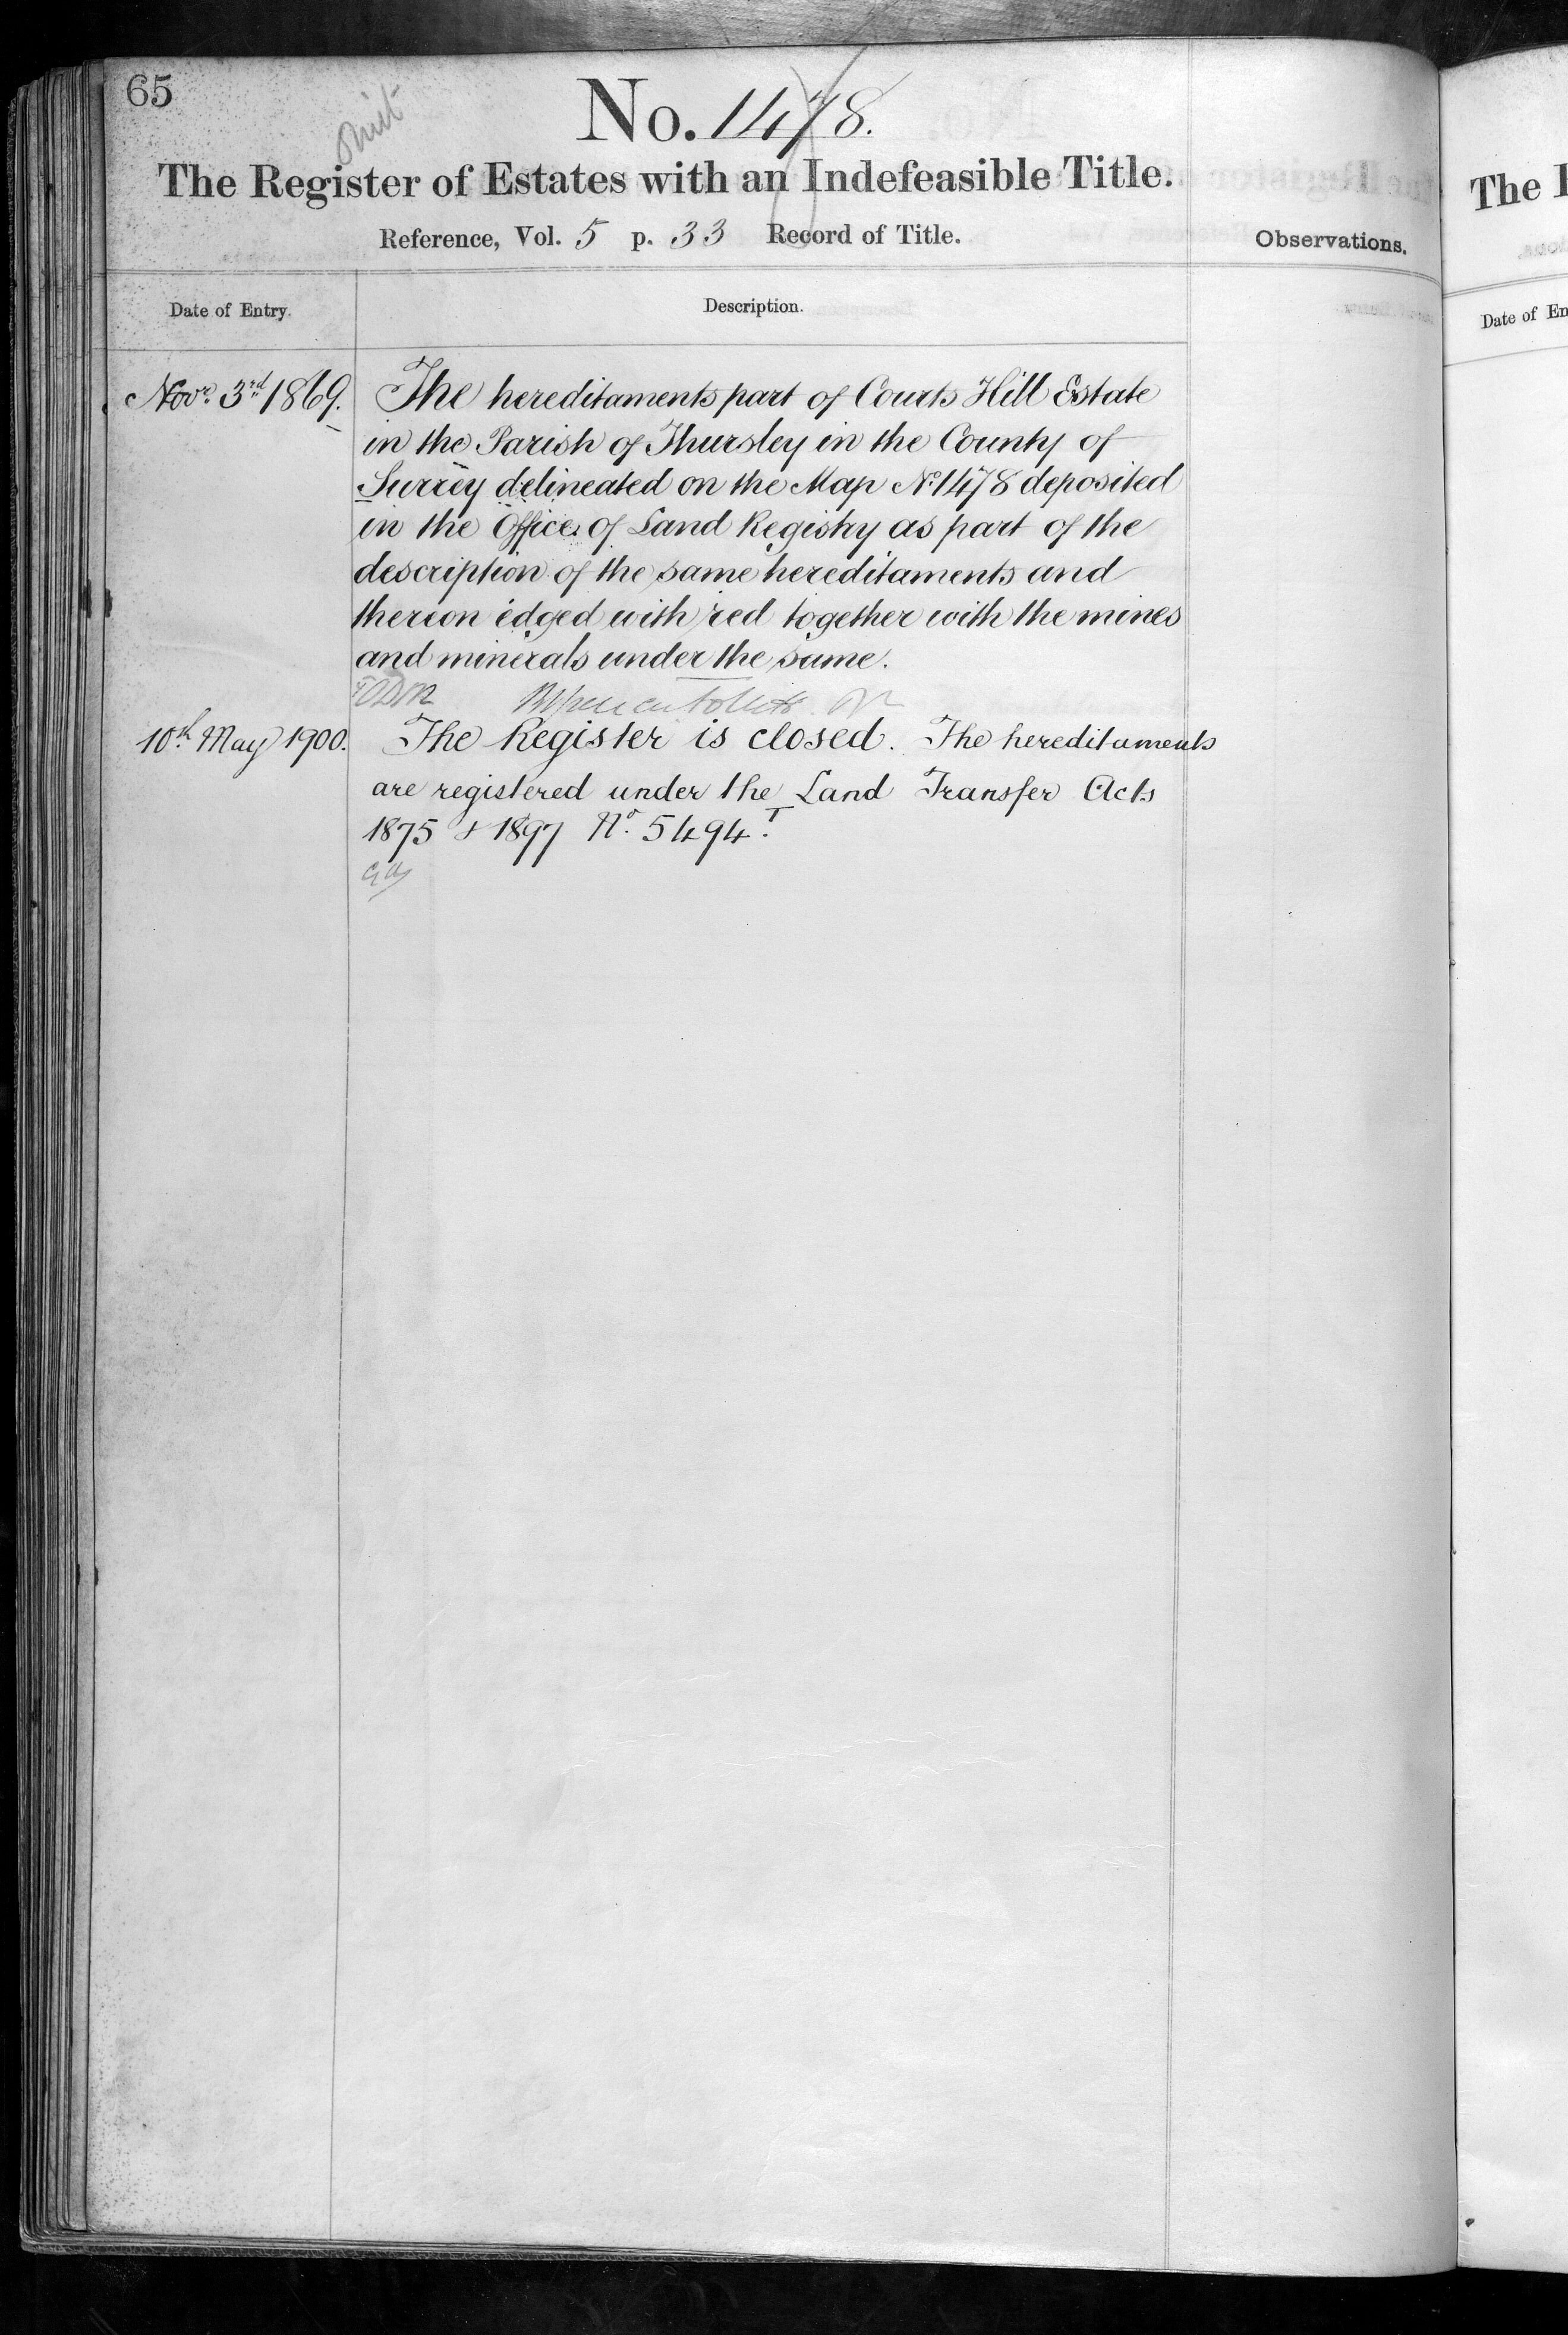 65
No. 1478.
omit
The Register of Estates with an Indefeasible Title.
Reference, Vol. 5 p. 33 Record of Title.
Observations.
Date of Entry.
Description.
Novr. 3rd 1869.
The hereditaments part of Courts Hill Estate
in the Parish of Thursley in the County of
Surrey delineated on the Map No. 1478 deposited
in the Office of Land Registry as part of the
description of the same hereditaments and
thereon edged with red together with the mines
and minerals under the same.
10th May 1900.
The Register is closed. The hereditaments
are registered under the Land Transfer Acts
1875 & 1897 No. 5494.
The
Date of En